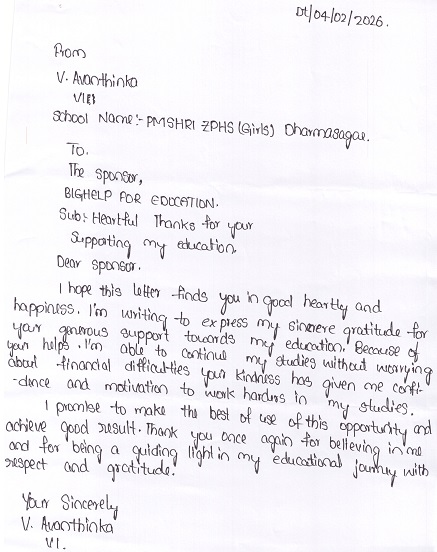 Dt/04/02/2026.
From
V. Avanthinka
VIII
School Name:- PMSHRI ZPHS (Girls) Dharmasagar.
To.
The sponsor,
BIGHELP FOR EDUCATION.
Sub: Heartful Thanks for your
Supporting my education.
Dear sponsor.
I hope this letter finds you in good heartly and
happiness. I'm writing to express my sincrere gratitude for
your generous support towards my education. Because of
your helps. I'm able to continue my studies without worrying
about financial difficulties your kindness has given me confi-
-dence and motivation to work harders in my studies.
I promise to make the best of use of this opportunity and
achieve good result. Thank you once again for believing in me
and for being a guiding light in my educational journey with
respect and gratitude.
Your Sincerely
V. Avanthinka
VI.